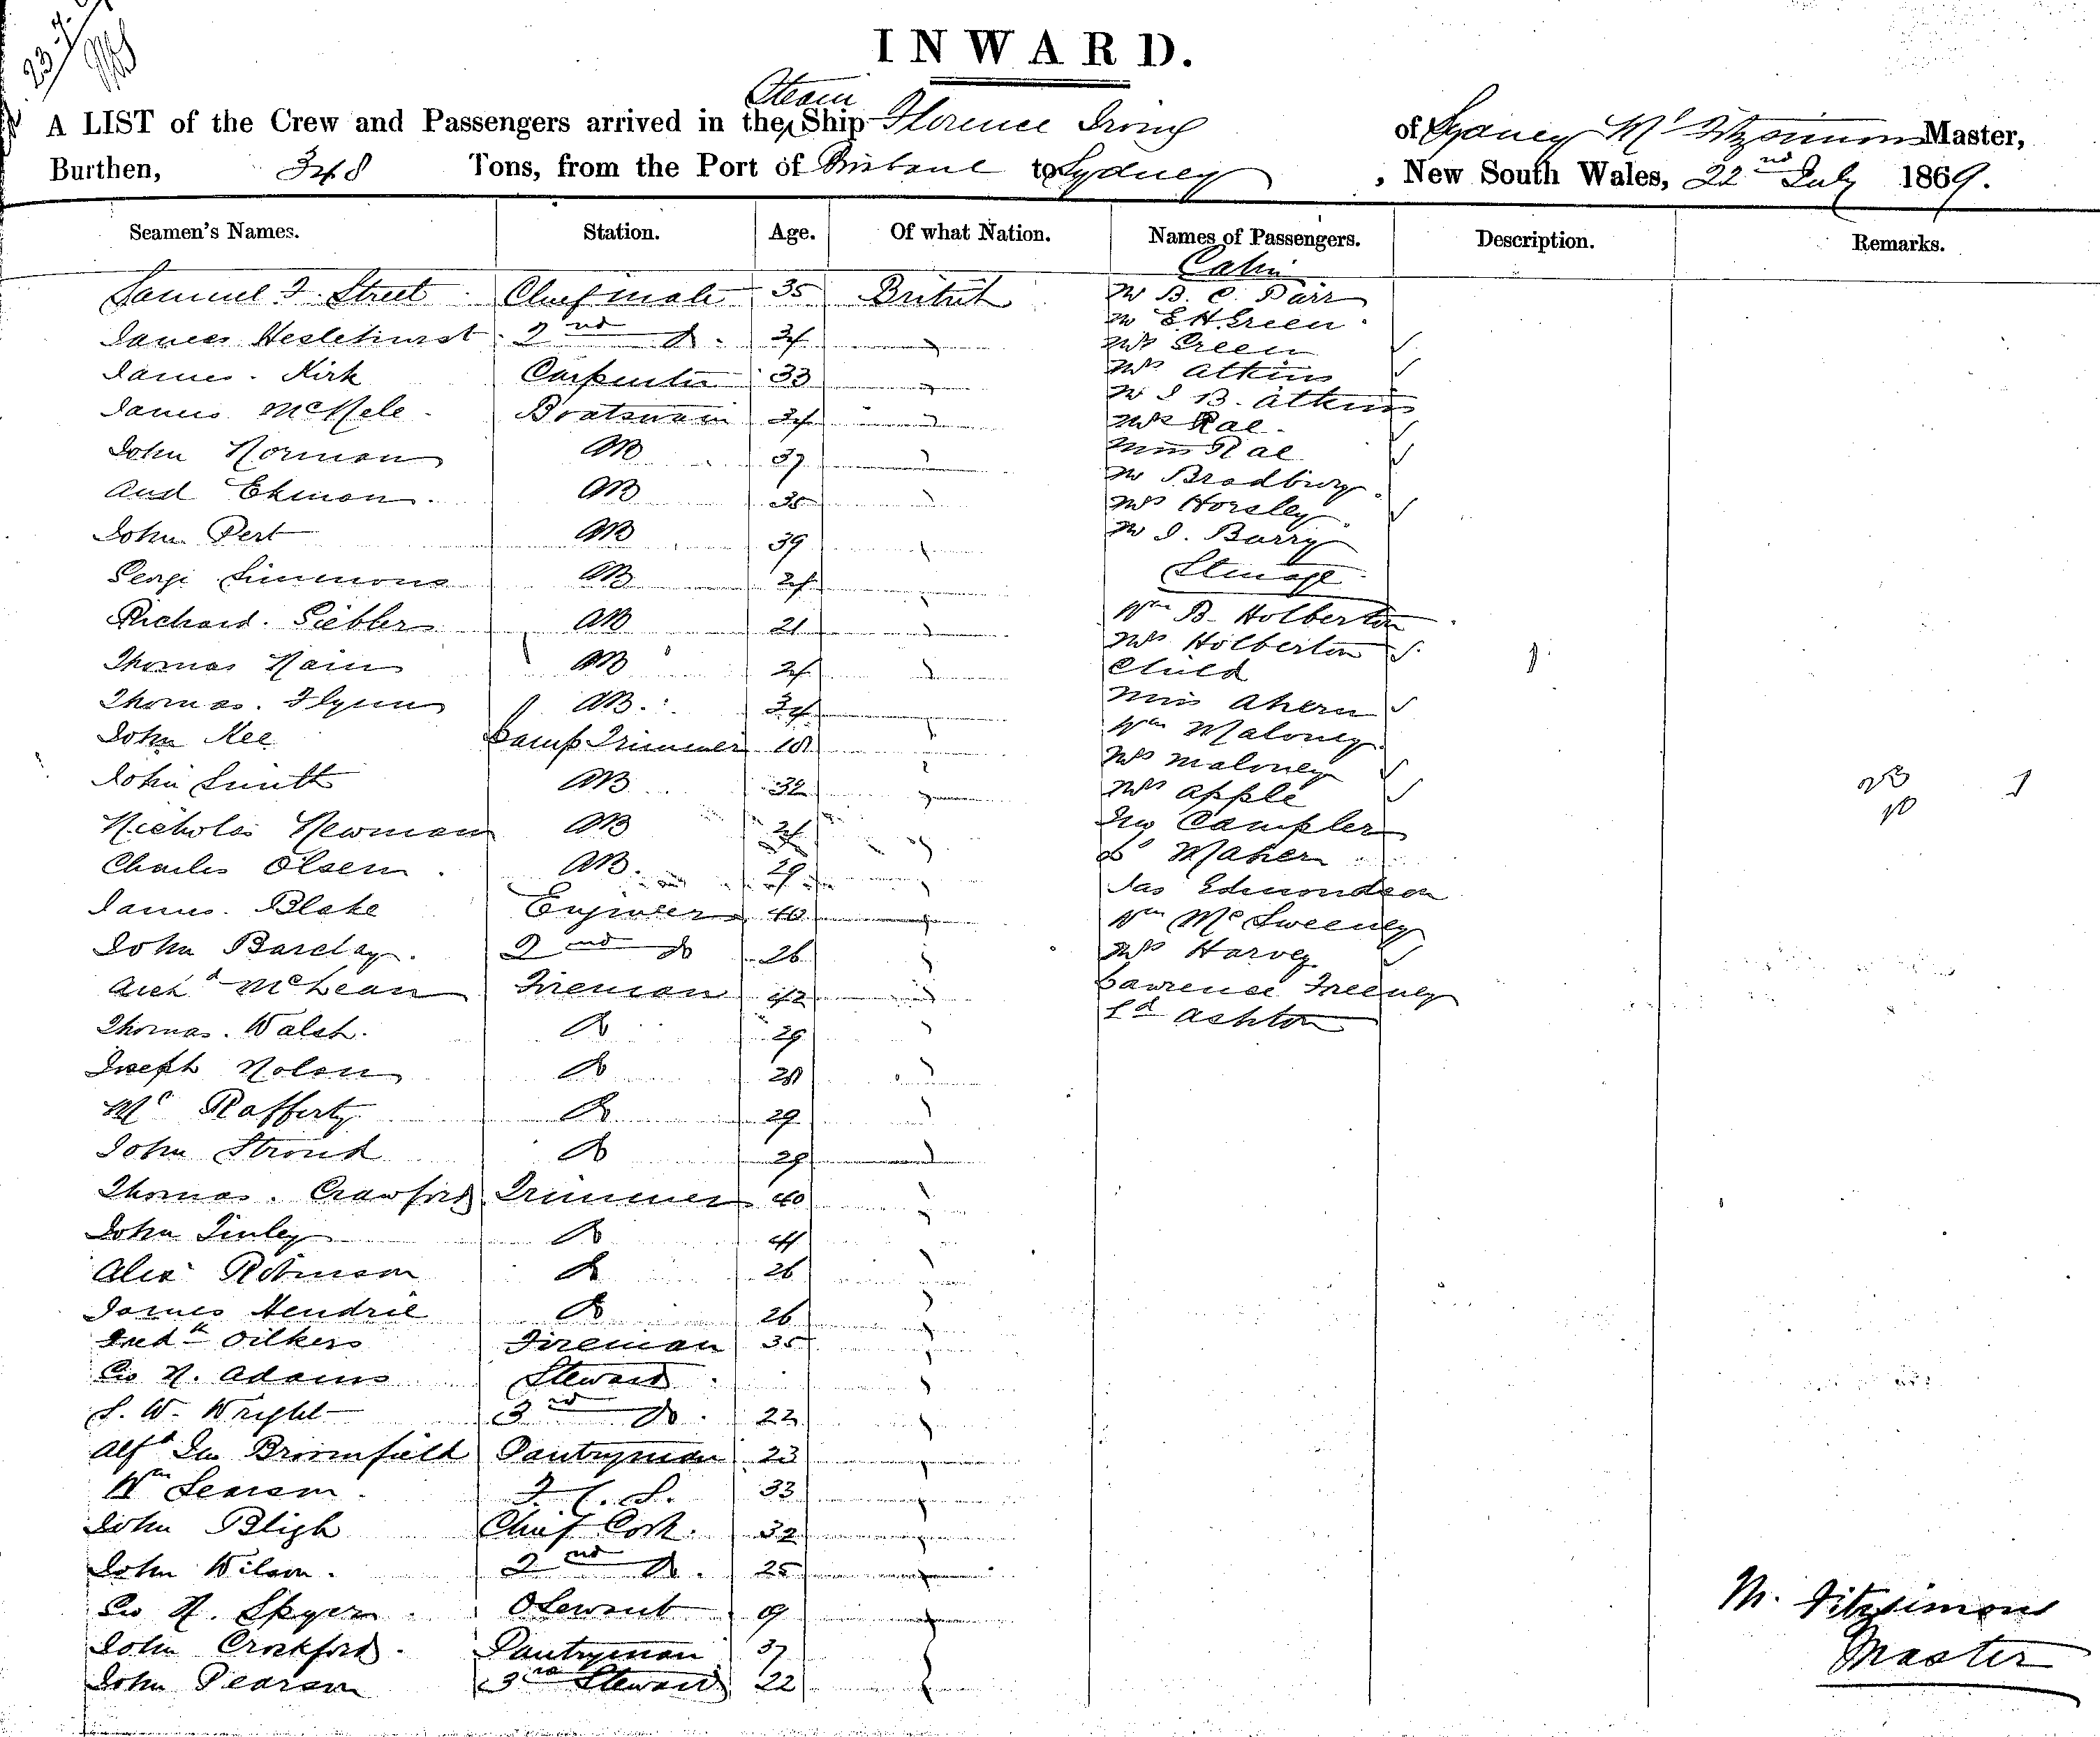 INWARD.
A LIST of the Crew and Passengers arrived in the Steam Ship Florence Irving of Sydney M. Fitzsimons Master,
Burthen, 348 Tons, from the Port of Brisbane to Sydney, New South Wales, 22nd July 1869.
Seamen's Names. Station. Age. Of what Nation. Names of Passengers. Description. Remarks.
Cabin
Samuel Street Chief mate 35 British Mr B. C. Parr
Mr E H. Green
James Heslehurst 2nd Do. Mrs Green
James Kirk Carpenter 33 Mrs Atkins
Mr J B. Atkins
James Boatswain Mrs Rae
John Norman AB 37 Miss Rae
Mr Bradbury
And Ekmon AB 35 Mrs Horsley
John Pert AB 39 Mr J. Barry
Steerage
George Simmons AB 24
Richard AB 21 Wm B. Holberton
Mrs Holberton
Thomas AB 24 Child 1
Thomas Flynn AB. 34 Miss Ahern
John Kee Lamp Trimmer 18 Wm Maloney
Mrs Maloney
John Smith AB 32 Mrs Apple 23 10 1
Nicholas Newman AB 24 Jno Campler
Charles Olsen AB. 29 Do Maher
James Blake Engineer 40 Jas Edmondson
Wm McSweeney
John Barclay 2nd Do 26 Mrs Harvey
Archd McLean Fireman 42 Lawrence Freeney
Thomas Walsh Do 29 Ashton
Joseph Nolan Do 28
Mc Rafferty Do 29
John Stroud Do 29
Thomas Crawford Trimmer 40
John Finley Do
Alex Robinson Do 26
James Hendrie Do 26
Fredk Oilkers Fireman 35
Geo H. Adams Steward
S. W. Wright 3rd Do. 22
Alfd Jno Broomfield Pantryman 23
Wm Searson F. C. S. 33
John Bligh Chief Cook 32
John Wilson 2nd Do. 25
Geo H. Spyer 19
John Crockford Pantryman 37
John Pearson 3rd Steward 22
M. Fitzsimons
Master